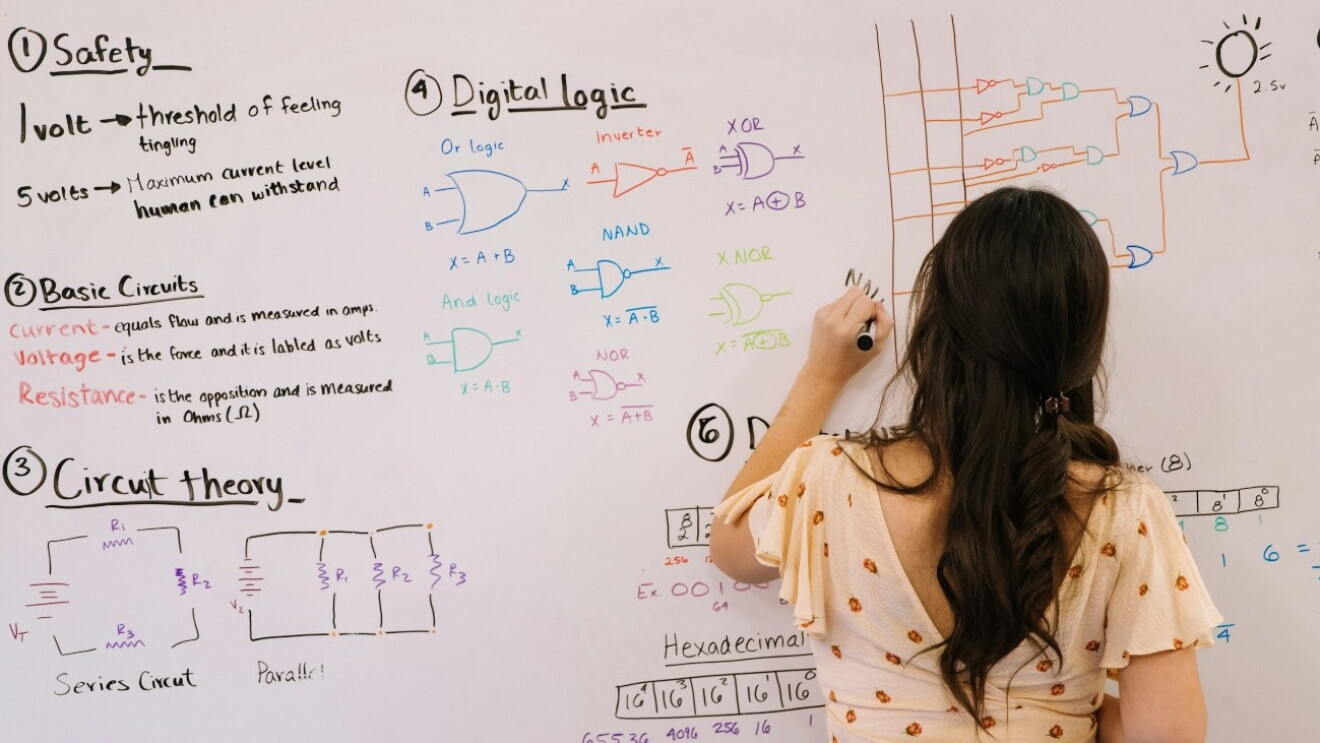 ① Safety
1 volt → threshold of feeling
tingling
5 volts → Maximum current level
human can withstand
② Basic Circuits
Current - equals flow and is measured in amps.
Voltage - is the force and it is labled as volts
Resistance - is the opposition and is measured
in Ohms (Ω)
③ Circuit theory
R₁
R₂
R₃
V_T
Series Circut
R₁ R₂ R₃
V₂
Parallel
④ Digital logic
Or logic
A
B
X
X = A + B
And Logic
A
B
X
X = A·B
Inverter
A
A̅
NAND
A
B
X
X = A̅·̅B̅
NOR
A
B
X
X = A̅+̅B̅
XOR
A
B
X
X = A ⊕ B
X NOR
X = A̅⊕̅B̅
2.5v
⑤
(8)
8¹ 8⁰
256
8 1
1 6 =
Ex. 001
64
4
Hexadecimal
16⁴ 16³ 16² 16¹ 16⁰
65536 4096 256 16 1